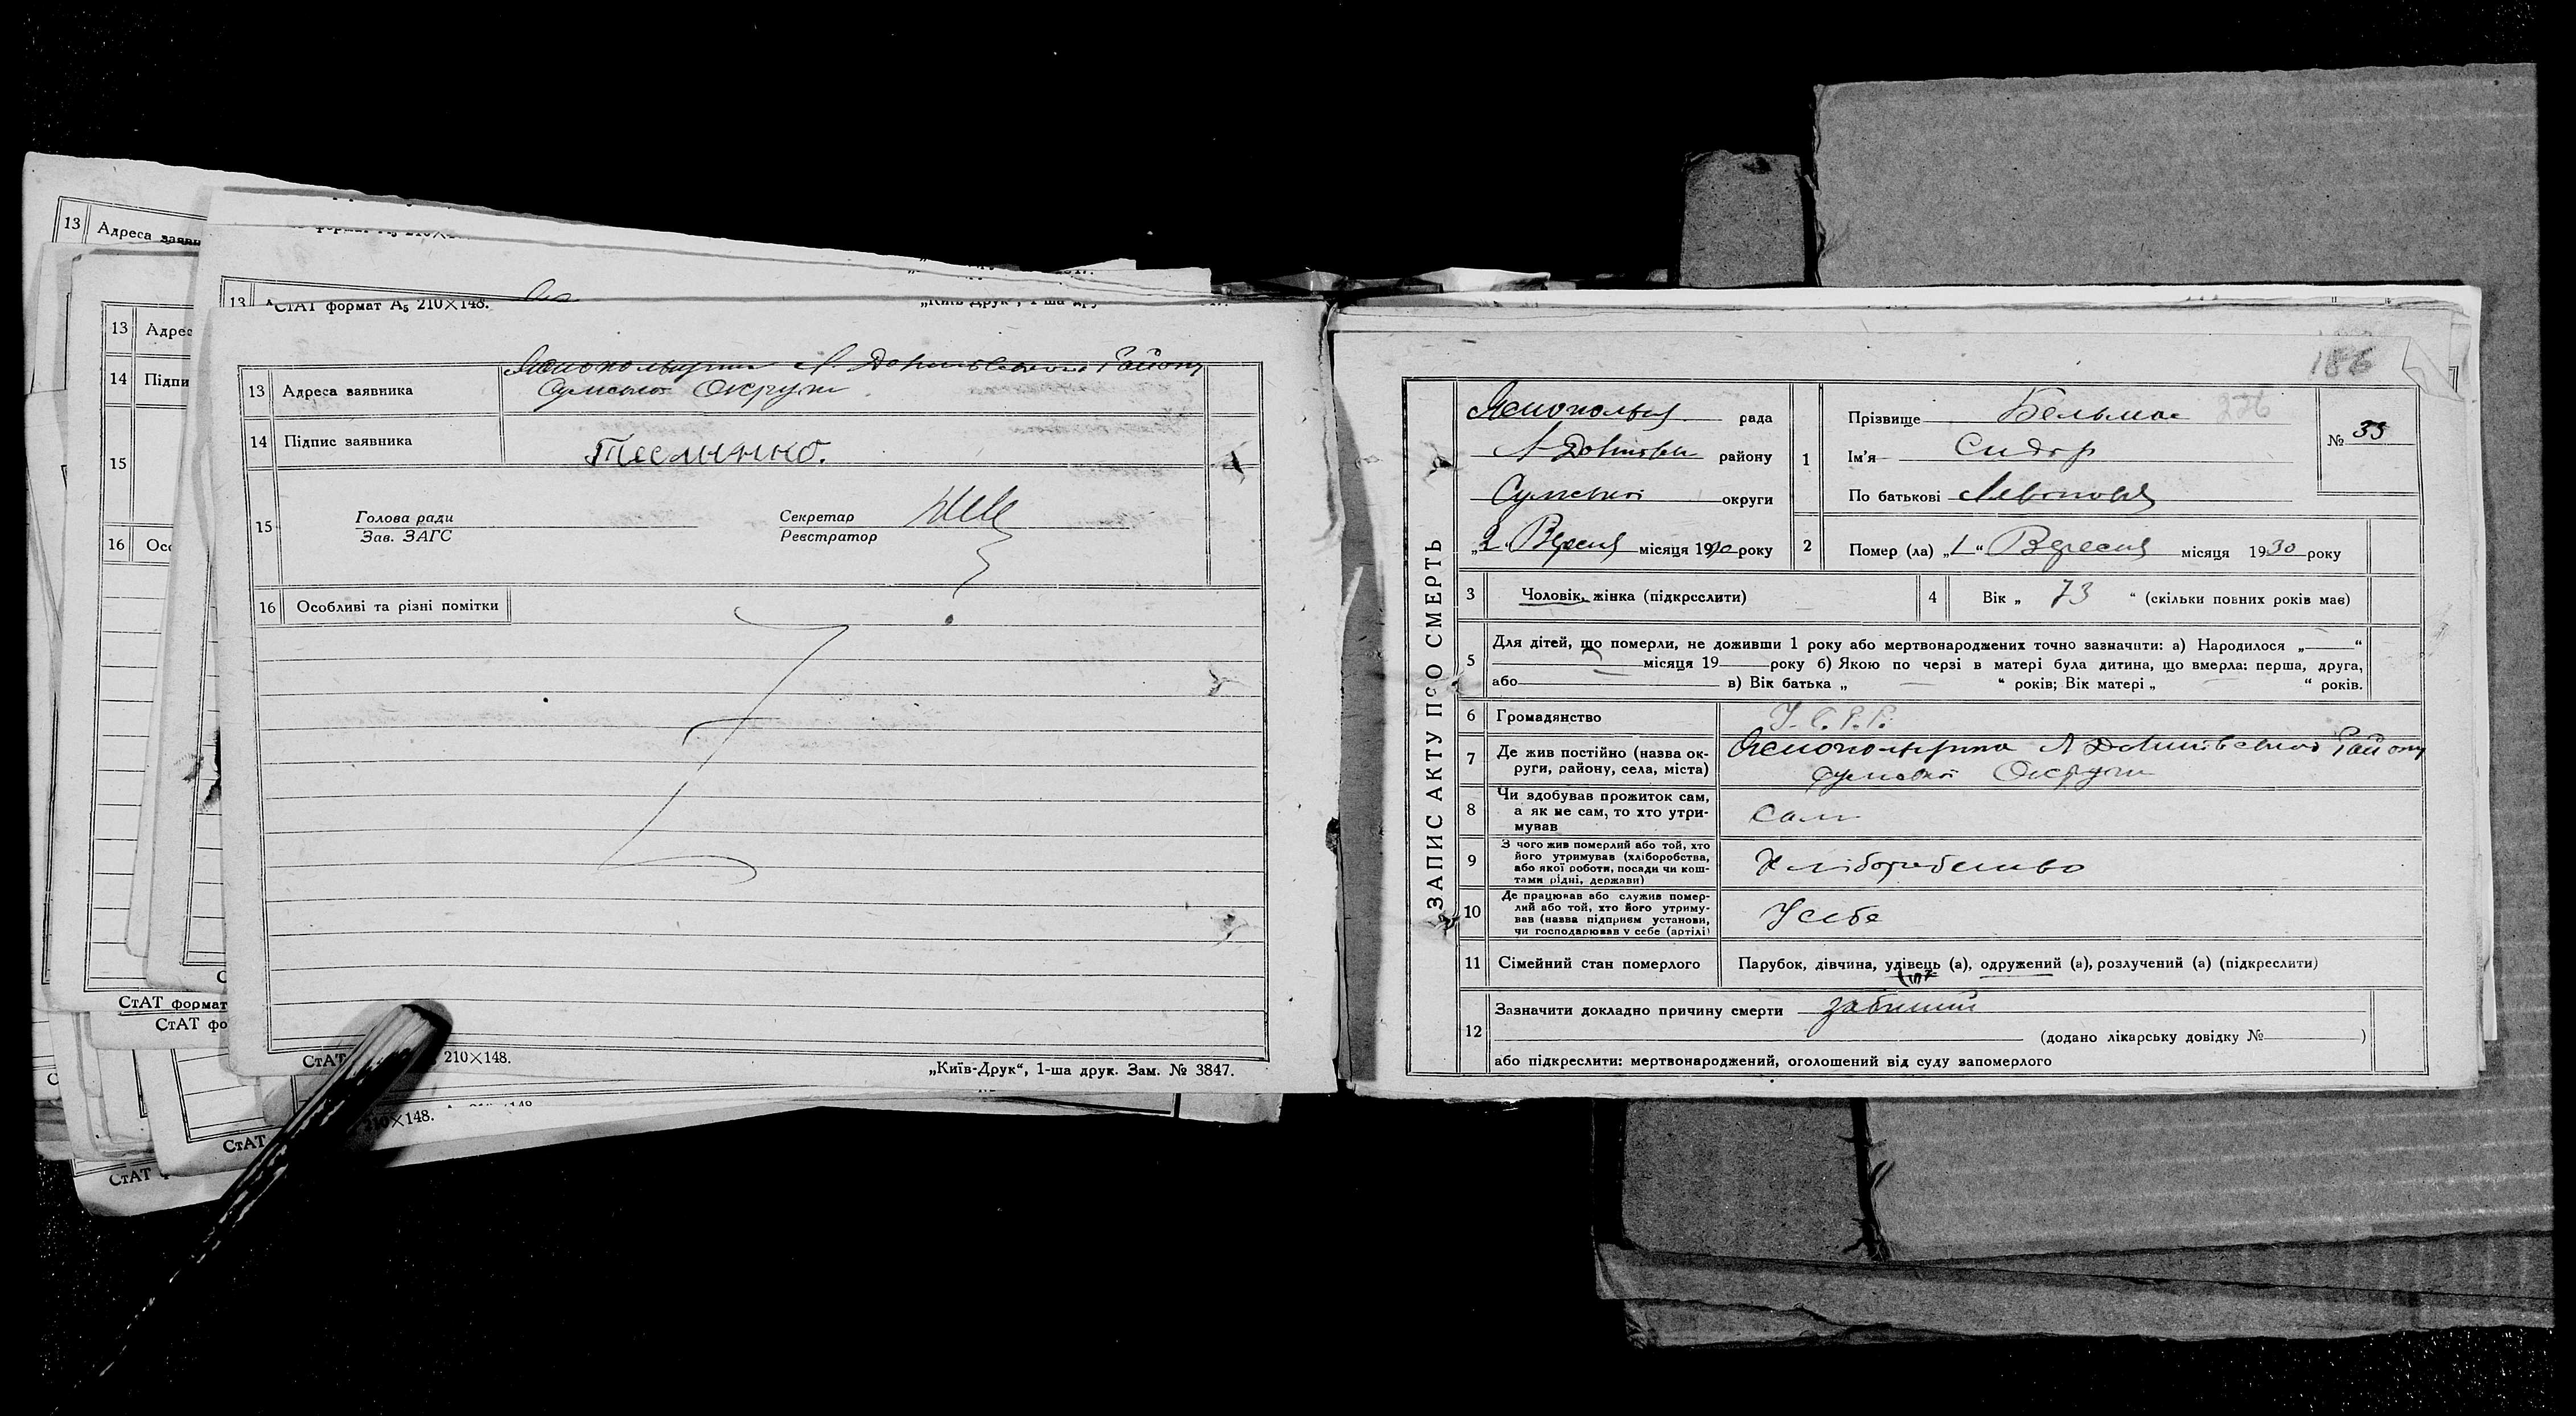 13 Адреса заявн
13 Адрес
14 Підпи
15
16 Осо
СтАТ формат
СтАТ фо
13
СтАТ формат А5 210×148.
13 Адреса заявника
Сумської Округи
14 Підпис заявника
15 Голова ради Секретар
Зав. ЗАГС Реєстратор
16 Особливі та різні помітки
СтАТ 210×148.
„Київ-Друк“, 1-ша друк. Зам. № 3847.
210×148.
СтАТ
СтАТ
186
ЗАПИС АКТУ ПРО СМЕРТЬ
рада
району
Сумської округи
„2“ Вересня місяця 1930 року
1 Прізвище Бельмас
Ім'я Сидор
По батькові
№ 35
2 Помер (ла) „1“ Вересня місяця 1930 року
3 Чоловік, жінка (підкреслити)
4 Вік „ 73 “ (скільки повних років має)
5 Для дітей, що померли, не доживши 1 року або мертвонароджених точно зазначити: а) Народилося „ “
місяця 19 року б) Якою по черзі в матері була дитина, що вмерла: перша, друга,
або в) Вік батька „ “ років; Вік матері „ “ років.
6 Громадянство У.С.Р.Р.
7 Де жив постійно (назва ок-
руги, району, села, міста)
Району
Сумської Округи
8 Чи здобував прожиток сам,
а як не сам, то хто утри-
мував
Сам
9 З чого жив померлий або той, хто
його утримував (хліборобства,
або якої роботи, посади чи кош-
тами рідні, держави)
Хліборобство
10 Де працював або служив помер-
лий або той, хто його утриму-
вав (назва підприєм установи,
чи господарював у себе (артілі)
У себе
11 Сімейний стан померлого Парубок, дівчина, удівець (а), одружений (а), розлучений (а) (підкреслити)
12 Зазначити докладно причину смерти
(додано лікарську довідку № )
або підкреслити: мертвонароджений, оголошений від суду запомерлого